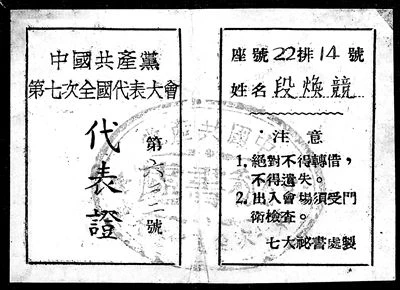 中國共產黨
第七次全國代表大會
代表證
第六二二號
座號22排14號
姓名段煥競
·注意
1.絕對不得轉借，
不得遺失。
2.出入會場須受門
衛檢查。
七大祕書處製